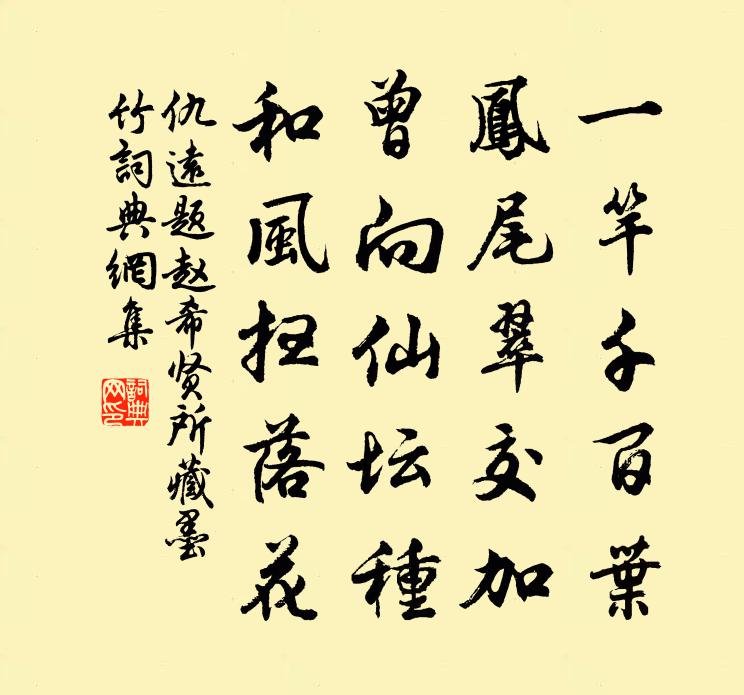 一竿千百葉
鳳尾翠交加
曾向仙坛種
和風扫落花
仇遠题赵希贤所藏墨
竹詞典網集
詞典
网印